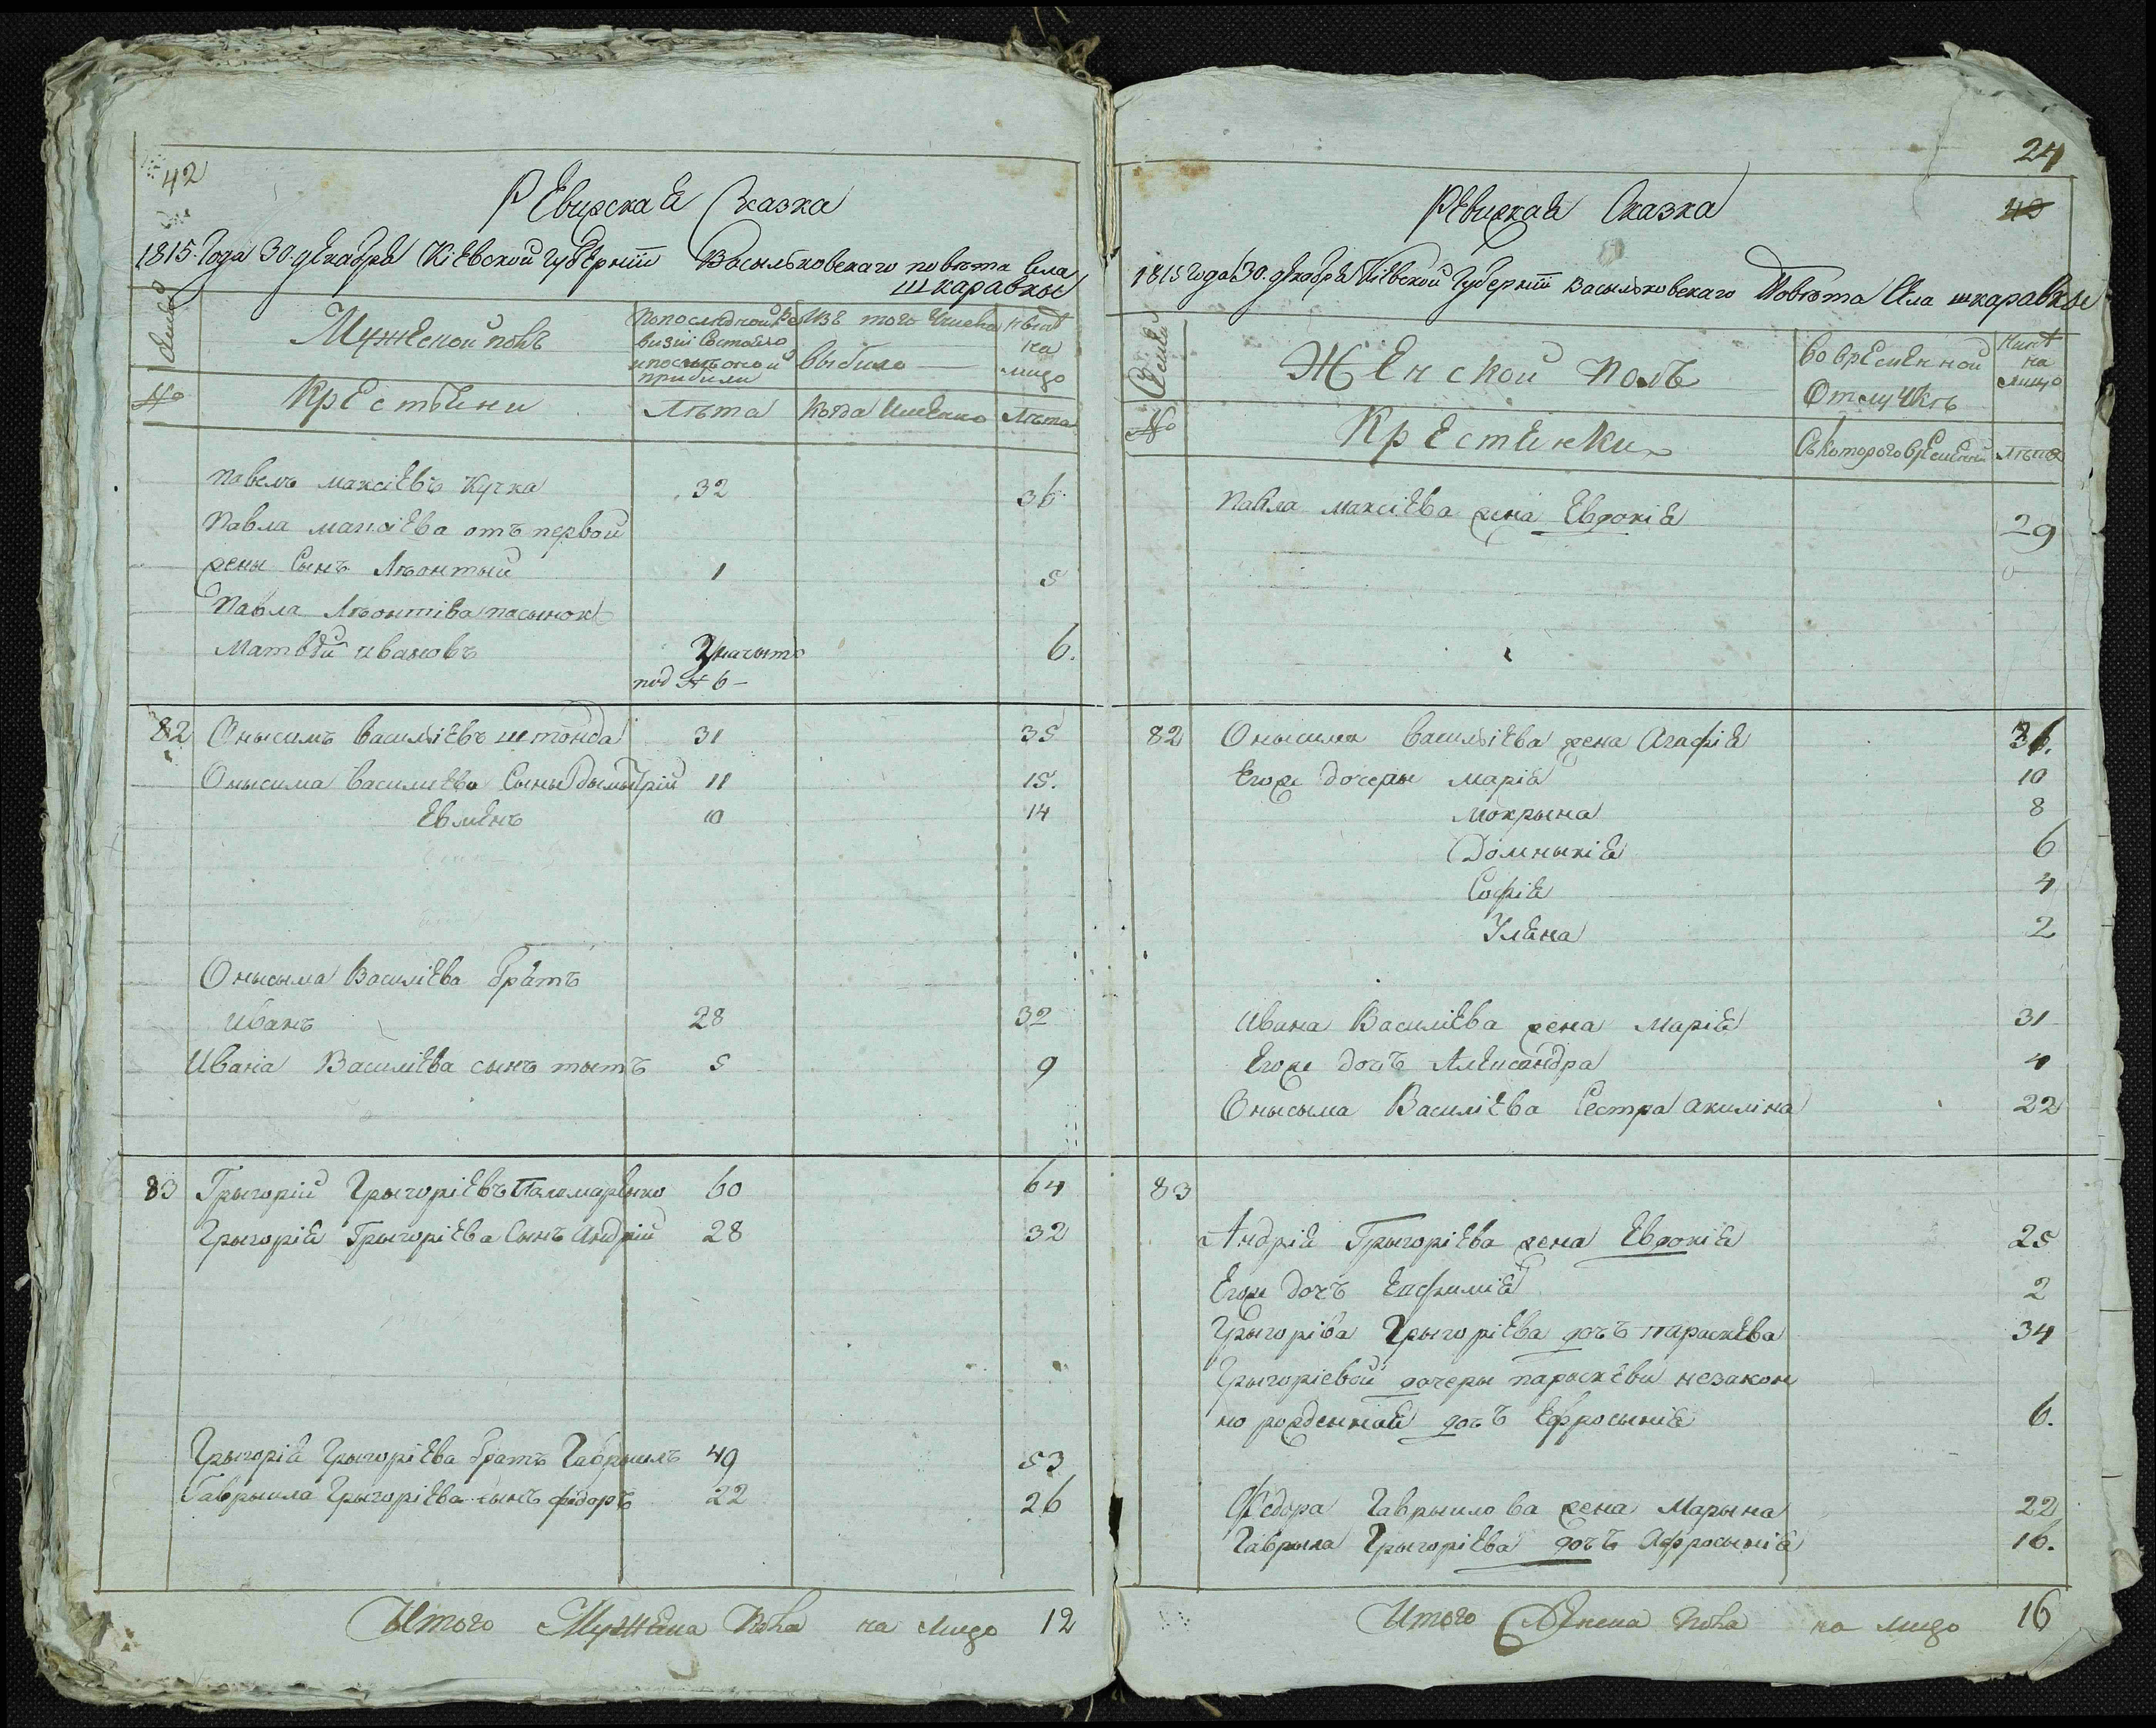 42
Ревизская Сказка
1815 Года 30. декабря Кіевской губерніи Васильковскаго повѣта Села
шкаравки
Семьи
Мужеской полъ
По последной Ре
визіи Состояло
и после оной
прибыли
Изъ того Числа
выбыло
Ныне
на
лицо
№
Крестьяни
Лѣта
Когда Именно
Лѣта
Павелъ максіевъ Кучка 32 36
Павла максіева отъ первой
жены Сынъ Леонтый 1 5
Павла Леонтіва пасынокъ
Матвѣй ивановъ 2 значыть 6.
под № 6 —
82 Онысимъ василіевъ штонда 31 35
Онысима василиева Сыны Дымытрій 11 15.
Евменъ 10 14
Онысыма Василіева братъ
Иванъ 28 32
Ивана Василіева сынъ тытъ 5 9
83 Грыгорій Грыгоріевъ Паламаренко 60 64
Грыгорія Грыгоріева Сынъ Андрій 28 32
Грыгорія Грыгоріева братъ Гаврыилъ 49 53
Гаврыила Грыгоріева сынъ федоръ 22 26
Итого Мужеска Пола на лицо 12
24
40
Ревизкая Сказка
1815 года 30. декабря Кіевской Губерніи Васильковскаго Повѣта Села шкаравки
Семьи
Женской Полъ
Во временной
Отлучкѣ
Нинѣ
на
лицо
№
Крестянки
Съ которого времени
Лѣта
Павла максіева жена Евдокія 29
82 Онысима василіева жена Агафія 36.
Егоже дочеры Марія 10
Мокрына 8
Домныкія 6
Софія 4
Уляна 2
Ивана Василіева жена Марія 31
Егоже дочъ Александра 4
Онысыма Василіева Сестра Акиліна 22
83
Андрія Грыгоріева жена Евдокія 25
Егоже дочъ Евфимія 2
Грыгоріва Грыгоріева дочъ параскева 34
Грыгоріевой дочеры параскевы незакон
но рожденная дочъ Ефросынія 6.
Федора Гаврыилова жена Марына 22
Гаврыла Грыгоріева дочъ Афросынія 16.
Итого Женска Пола на лицо 16